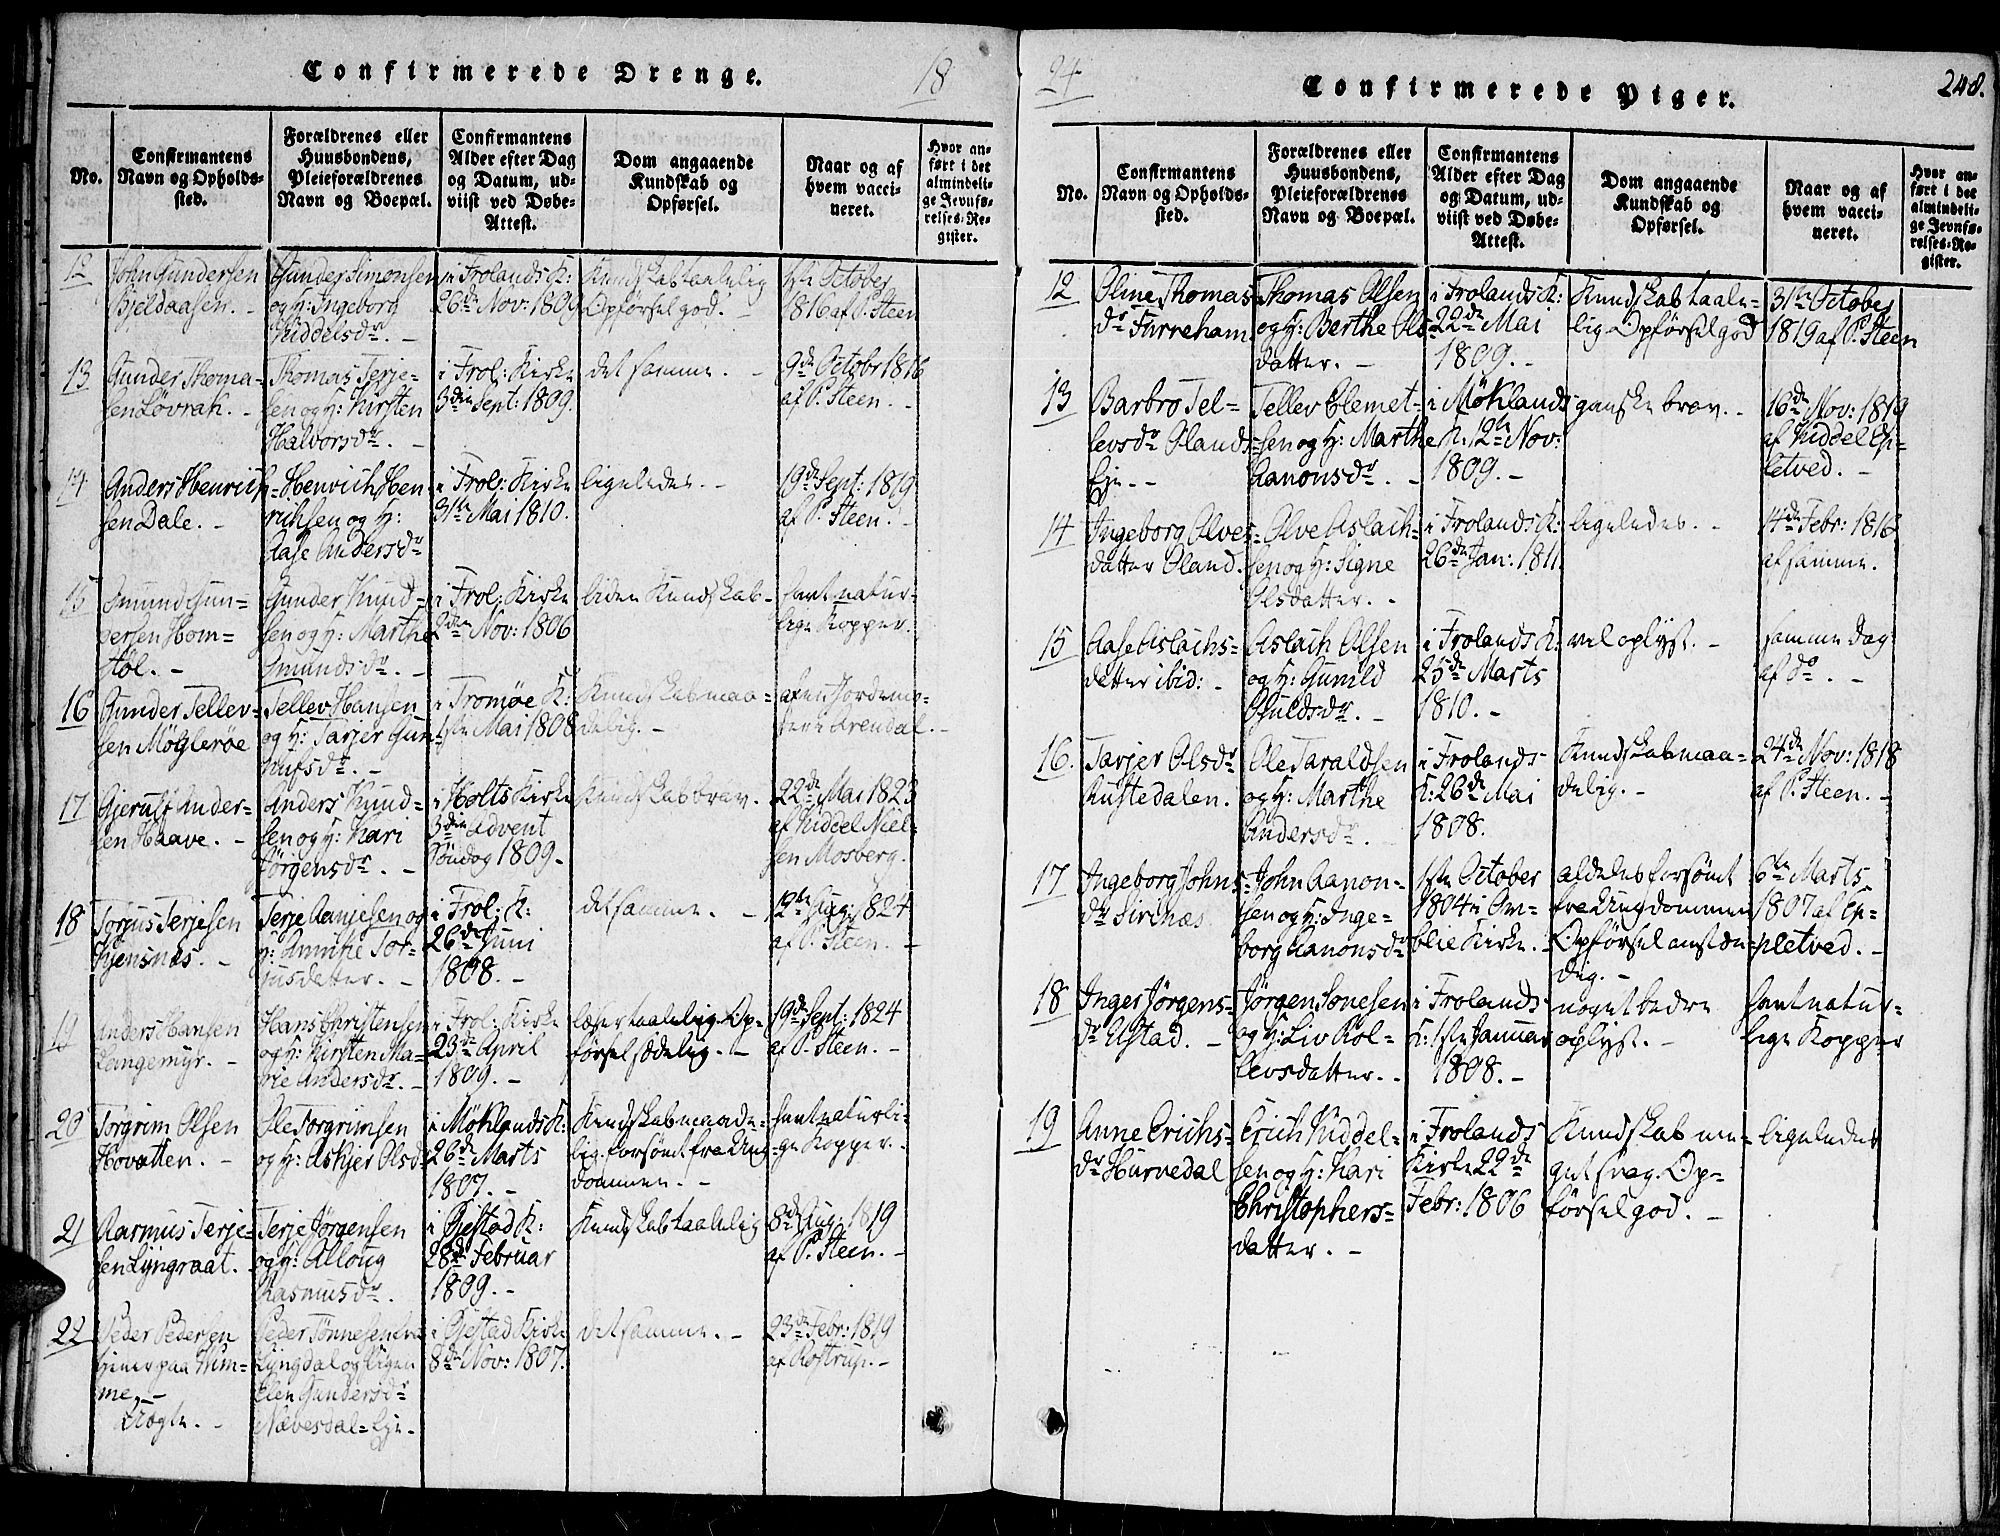 Confirmerede Drenge.
18
No.
Confirmantens
Navn og Opholds-
sted.
Forældrenes eller
Huusbondens,
Pleieforældrenes
Navn og Boepæl.
Confirmantens
Alder efter Dag
og Datum, ud-
viist ved Døbe-
Attest.
Dom angaaende
Kundskab og
Opførsel.
Naar og af
hvem vacci-
neret.
Hvor an-
ført i det
almindeli-
ge Jevnfø-
relses-Re-
gister.
12
John Gundersen
Bjeldaasen. -
Gunder Simonsen
og H: Ingeborg
Kiddelsdr. -
i Frolands K:
26de Nov: 1809
Kundskab taalelig
Opførsel god. -
1ste October
1816 af P. Steen
13
Gunder Thoma-
sen Løvrak. -
Thomas Terje-
sen og H: Kirsten
Halvorsdr. -
i Frol: Kirke
3die Sept: 1809.
det samme. -
9de Octobr 1816
af P. Steen. -
14
Anders Henrich-
sen Dale. -
Henrich Hen-
richsen og H:
Aase Andersdr
i Frol: Kirke
31te Mai 1810.
ligeledes. -
19de Sept: 1819
af P. Steen. -
15
Smund Gun-
dersen Hom-
støl. -
Gunder Knud-
sen og H: Marthe
Smundsdr. -
i Frol: Kirke
2den Nov: 1806
liden Kundskab -
havt natur-
lige Kopper.
16
Gunder Tellev-
sen Møglerøe
Tellev Hansen
og H: Tarjer Gun-
nufsdr. -
i Tromøe K:
1ste Mai 1808
Kundskab maa-
delig. -
af en Jordemo-
der i Arendal. -
17
Gjerulf Ander-
sen Haave. -
Anders Knud-
sen og H: Kari
Jørgensdr. -
i Holts Kirke
3die Advent
Søndag 1809 -
Kundskab brav.
22de Mai 1823
af Kiddel Niel-
sen Mosberg.
18
Torjus Terjesen
Hjensnæs. -
Terje Aanjesen og
H: Annike Tor-
jusdatter. -
i Frol: K:
26de Juni
1808. -
det samme. -
12te Aug: 1824
af P. Steen. -
19
Anders Hansen
Langemyr. -
Hans Christensen
og H: Kirsten Ma-
rie Andersdr. -
i Frol: Kirke
23de April
1809. -
læser taalelig Op-
førsel sædelig. -
19de Sept: 1824
af P. Steen. -
20
Torgrim Olsen
Hovatten. -
Ole Torgrimsen
og H: Askjer Olsdr
i Møklands K:
26de Marts
1807. -
Kundskab maade-
lig forsømt fra Ung-
dommen. -
havt naturli-
ge Kopper. -
21
Aasmus Terje-
sen Lyngraat. -
Terje Jørgensen
og H: Alloug
Rasmusdr.
i Gjestad K:
28de Februar
1809. -
Kundskab taalelig
8de Aug: 1819
af P. Steen. -
22
Peder Pedersen
tjener paa Rim-
me -
Peder Tønnesen fra
Lyngdal og Pigen
Elen Gundersdr
Næbesdal-Eje -
i Gjestad Kirke
8de Nov: 1807.
det samme. -
23de Febr: 1819
af Rostrup. -
24
Confirmerede Piger.
248.
No.
Confirmantens
Navn og Opholds-
sted.
Forældrenes eller
Huusbondens,
Pleieforældrenes
Navn og Boepæl.
Confirmantens
Alder efter Dag
og Datum, ud-
viist ved Døbe-
Attest.
Dom angaaende
Kundskab og
Opførsel.
Naar og af
hvem vacci-
neret.
Hvor an-
ført i det
almindeli-
ge Jevnfø-
relses-Re-
gister.
12
Oline Thomas-
dr Furreham.
Thomas Olsen
og H: Berthe Ols-
datter. -
i Frolands K:
22de Mai
1809. -
Kundskab taale-
lig. Opførsel god
31te October
1819 af P. Steen
13
Barbro Tel-
levsdr Ølands-
Eje. -
Tellev Clemet-
sen og H: Marthe
Aanonsdr. -
i Møklands
K: 12te Nov:
1809. -
ganske brav. -
16de Nov: 1819
af Kiddel Ep-
letved. -
14
Ingeborg Olves-
datter Øland.
Olve Aslach-
sen og H: Signe
Olsdatter. -
i Frolands K:
26de Jan: 1811.
ligeledes. -
14de Febr: 1816
af samme.
15
Aase Aslachs-
datter ibid: -
Aslach Olsen
og H: Gunild
Ghuldsdr. -
i Frolands K:
25de Marts
1810. -
vel oplyst. -
samme dag
af do. -
16.
Tarjer Olsdr
Rustedalen.
Ole Taraldsen
og H: Marthe
Andersdr. -
i Frolands
K: 26de Mai
1808.
Kundskab maa-
delig. -
24de Nov: 1818
af P. Steen. -
17
Ingeborg Johns-
dr Sirenæs
John Aanon-
sen og H: Inge-
borg Aanonsdr
1ste October
1804 i Om-
blie Kirke. -
aldeles forsømt
fra Ungdommen
Opførsel anstæn-
dig. -
6te Marts
1807 af Ep-
pletved. -
18
Inger Jørgens-
dr Ufstad. -
Jørgen Sonesen
og H: Liv Rol-
levsdatter. -
i Frolands
K: 1ste Januar
1808. -
noget bedre
oplyst. -
havt natur-
lige Kopper
19
Anne Erichs-
dr Hurvedal
Erich Kiddel-
sen og H: Kari
Christophers-
datter. -
i Frolands
Kirke 22de
Febr: 1806
Kundskab me-
get svag. Op-
førsel god. -
ligeledes